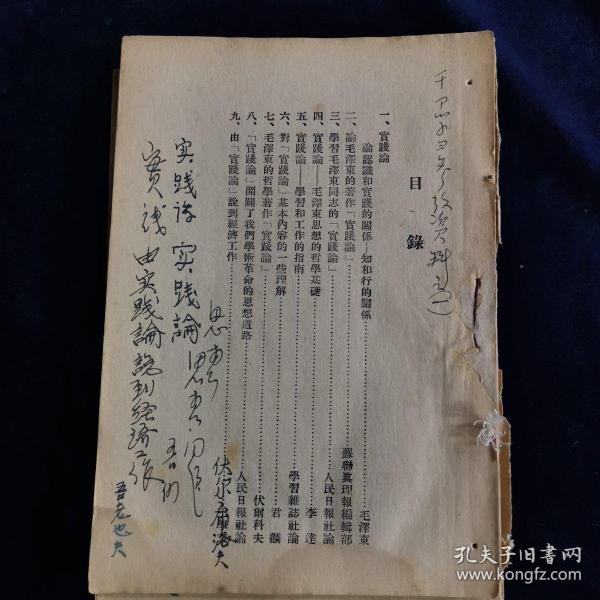 目錄
一、實踐論
論認識和實踐的關係—知和行的關係……毛澤東
二、論毛澤東的著作「實踐論」……蘇聯眞理報編輯部
三、學習毛澤東同志的「實踐論」……人民日報社論
四、實踐論——毛澤東思想的哲學基礎……李達
五、實踐論——學習和工作的指南……學習雜誌社論
六、對「實踐論」基本內容的一些理解……君麟
七、毛澤東的哲學著作「實踐論」……伏爾科夫
八、「實踐論」開闢了我們學術革命的思想道路
九、由「實踐論」說到經濟工作……人民日報社論
实践论 实践論
實践 由实践論說到經濟工作
孔夫子旧書网
www.kongfz.com